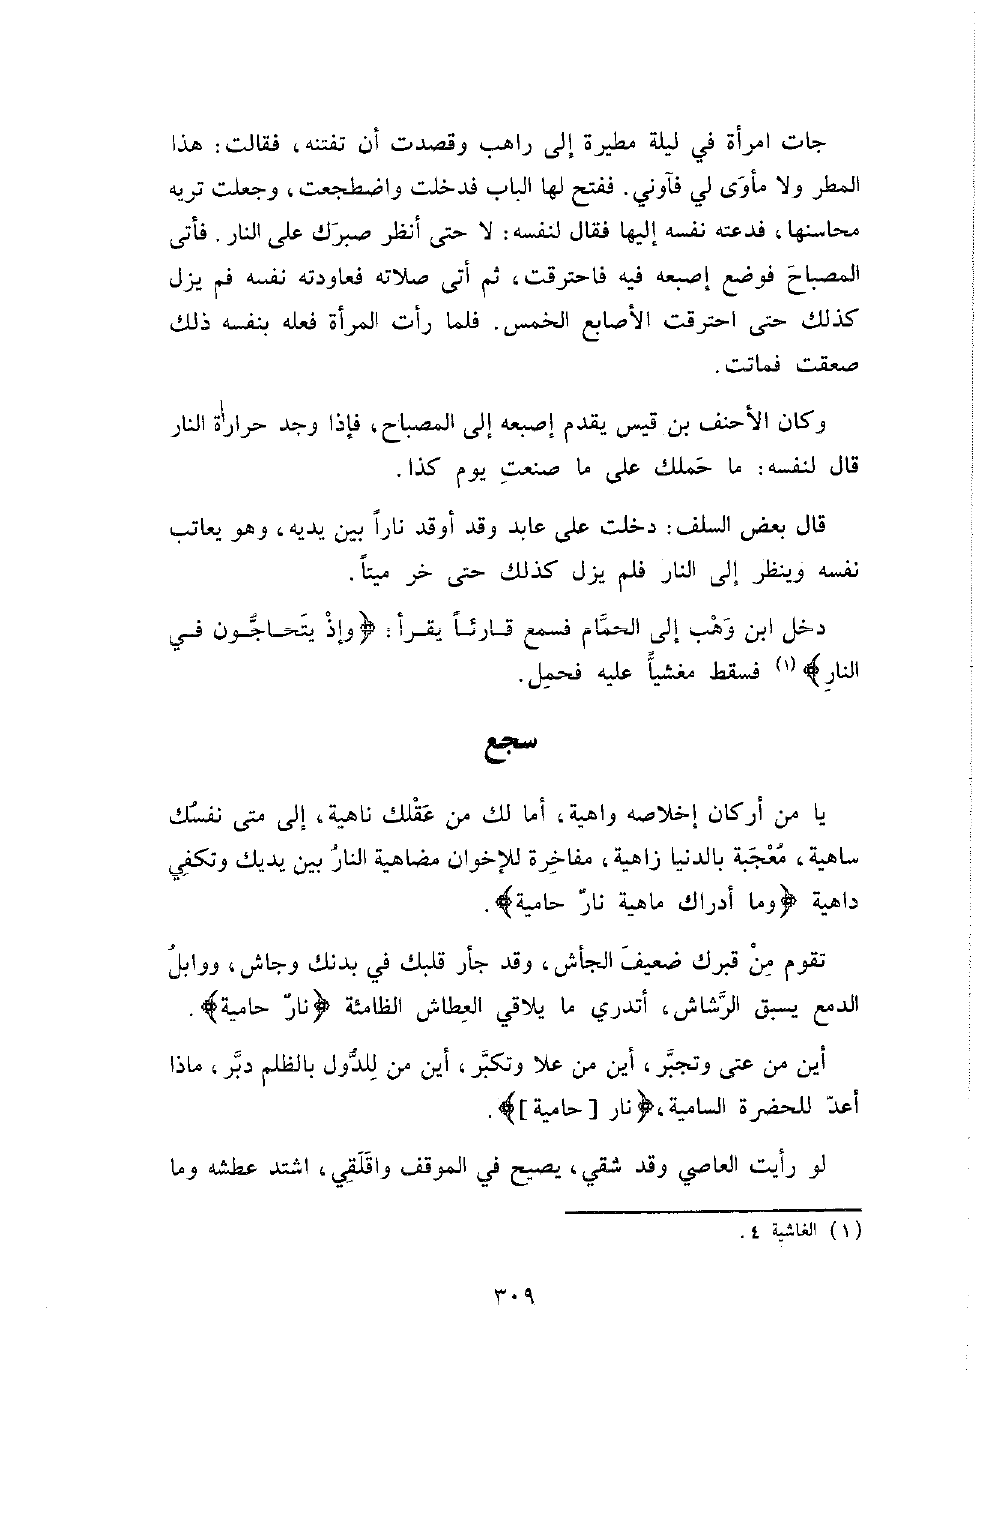 جات امرأة في ليلة مطيرة إلى راهب وقصدت أن تفتنه، فقالت: هذا
المطر ولا مأوَى لي فآوني. ففتح لها الباب فدخلت واضطجعت، وجعلت تريه
محاسنها، فدعته نفسه إليها فقال لنفسه: لا حتى أنظر صبرَك على النار. فأتى
المصباحَ فوضع إصبعه فيه فاحترقت، ثم أتى صلاته فعاودته نفسه فم يزل
كذلك حتى احترقت الأصابع الخمس. فلما رأت المرأة فعله بنفسه ذلك
صعقت فماتت.
وكان الأحنف بن قيس يقدم إصبعه إلى المصباح، فإذا وجد حرارأة النار
قال لنفسه: ما حَملك على ما صنعتِ يوم كذا.
قال بعض السلف: دخلت على عابد وقد أوقد ناراً بين يديه، وهو يعاتب
نفسه وينظر إلى النار فلم يزل كذلك حتى خر ميتاً.
دخل ابن وَهْب إلى الحمَّام فسمع قـارئـاً يقـرأ: ﴿وإذْ يتَحـاجُّـون فـي
النارِ﴾(١) فسقط مغشياً عليه فحمِل.
سجع
يا من أركان إخلاصه واهية، أما لك من عَقْلك ناهية، إلى متى نفسُك
ساهية، مُعْجَبة بالدنيا زاهية، مفاخِرة للإخوان مضاهية النارُ بين يديك وتكفِي
داهية ﴿وما أدراك ماهية نارٌ حامية﴾.
تقوم مِنْ قبرك ضعيفَ الجأش، وقد جأر قلبك في بدنك وجاش، ووابلُ
الدمع يسبق الرَّشاش، أتدري ما يلاقي العِطاش الظامئة ﴿نارٌ حامية﴾.
أين من عتى وتجبَّر، أين من علا وتكبَّر، أين من لِلدُّول بالظلم دبَّر، ماذا
أعدّ للحضرة السامية،﴿نار [حامية]﴾.
لو رأيت العاصي وقد شقي، يصيح في الموقف واقَلَقِي، اشتد عطشه وما
(١) الغاشية ٤.
٣٠٩